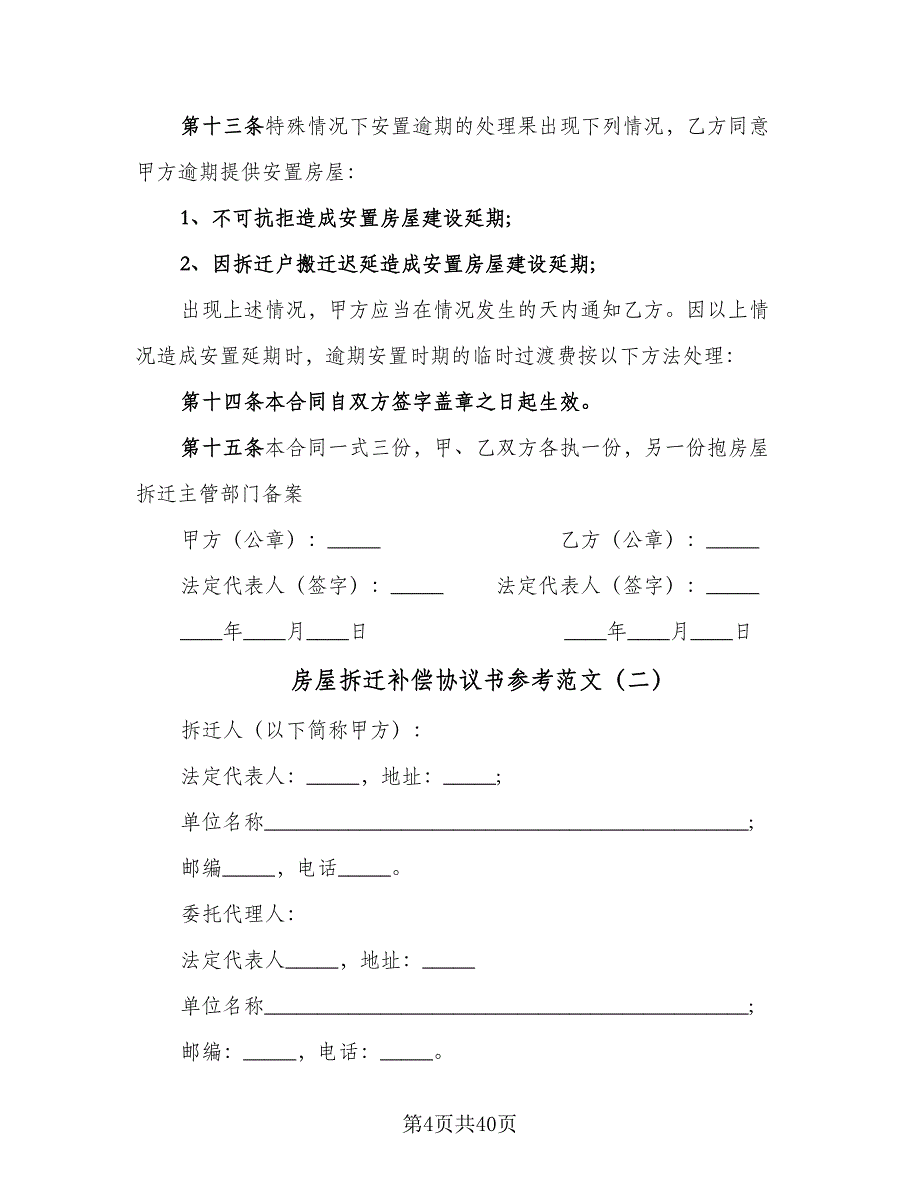 第十三条特殊情况下安置逾期的处理果出现下列情况，乙方同意
甲方逾期提供安置房屋：
1、不可抗拒造成安置房屋建设延期;
2、因拆迁户搬迁迟延造成安置房屋建设延期;
出现上述情况，甲方应当在情况发生的天内通知乙方。因以上情
况造成安置延期时，逾期安置时期的临时过渡费按以下方法处理：
第十四条本合同自双方签字盖章之日起生效。
第十五条本合同一式三份，甲、乙双方各执一份，另一份抱房屋
拆迁主管部门备案
甲方（公章）：_____ 乙方（公章）：_____
法定代表人（签字）：_____ 法定代表人（签字）：_____
____年____月____日 ____年____月____日
房屋拆迁补偿协议书参考范文（二）
拆迁人（以下简称甲方）：
法定代表人：_____，地址：_____;
单位名称______________________________________________;
邮编_____，电话_____。
委托代理人：
法定代表人_____，地址：_____
单位名称______________________________________________;
邮编：_____，电话：_____。
第4页共40页